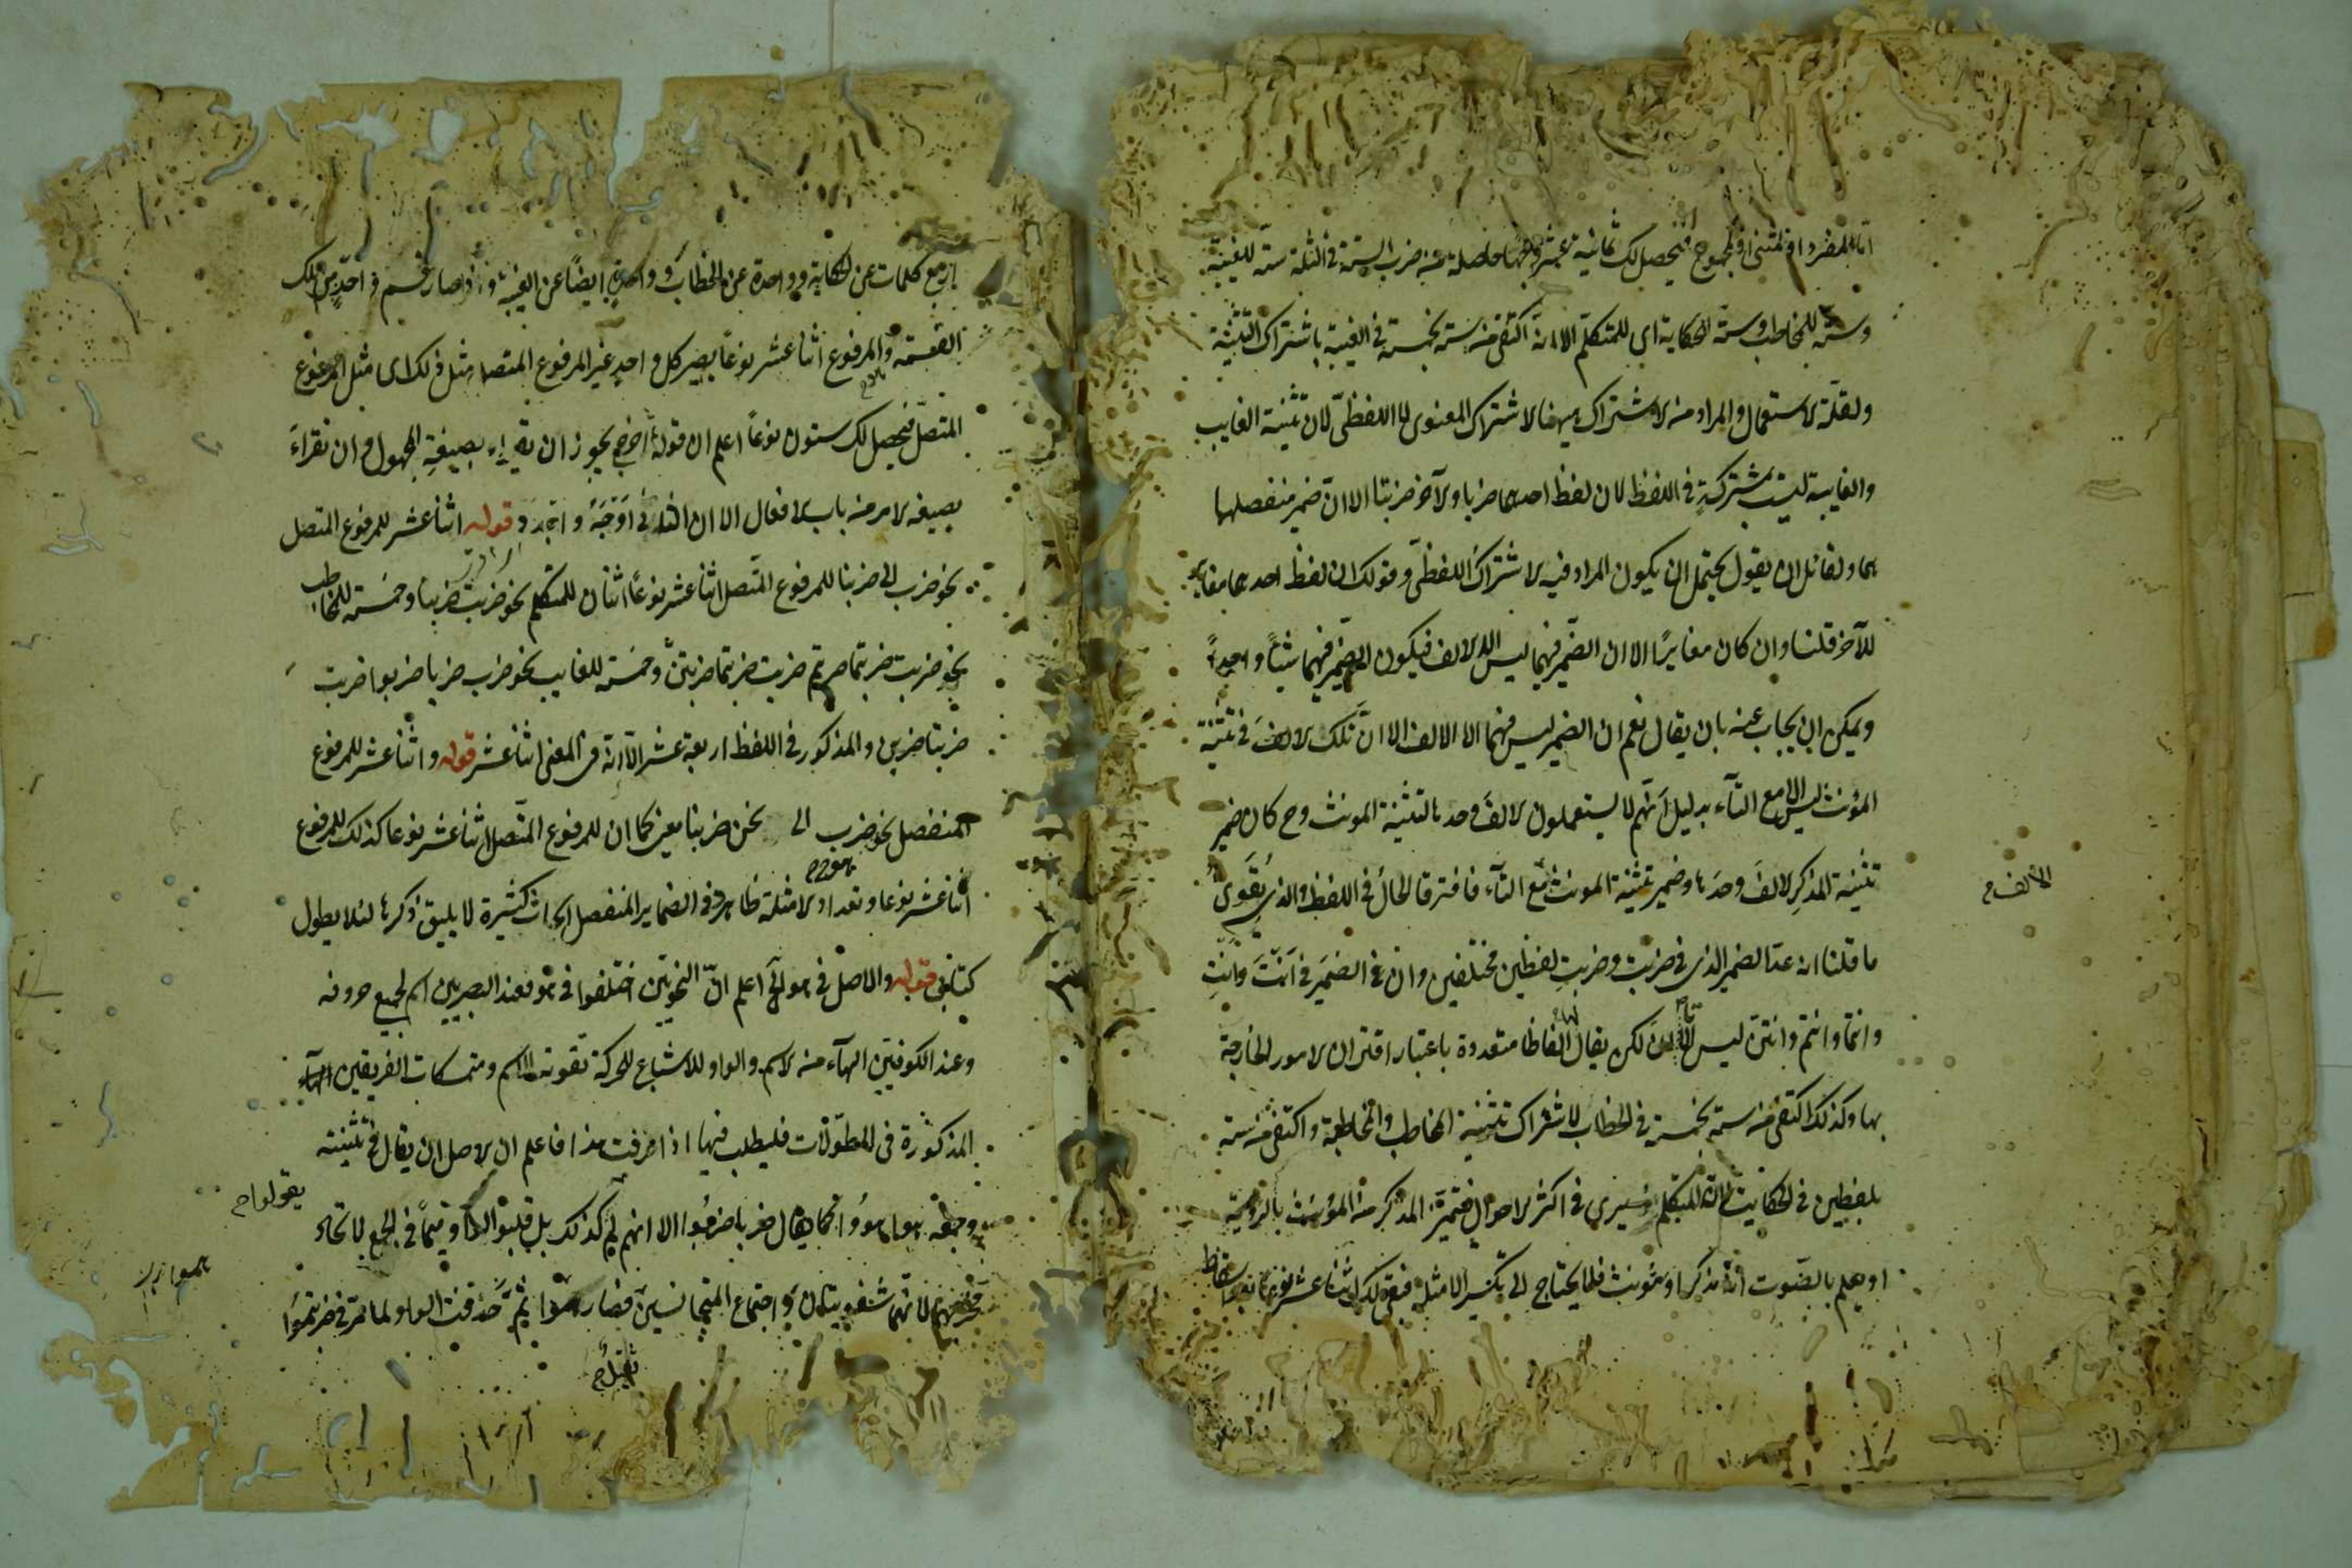 اما للمفرد او للمثنى او للمجموع فيحصل لك ثمانية عشر وجها حاصلة من ضرب الستة في الثلثة ستة للغيبة
وستة للمخاطب وستة للحكاية اى للمتكلم الا انه اكتفى من ستة بخمسة في الغيبة باشتراك التثنية
ولقلة الاستعمال والمراد من الاشتراك ههنا الاشتراك المعنوى لا اللفظى لان تثنية الغايب
والغايبة ليست بمشتركة في اللفظ لان لفظ احدهما ضربا والآخر ضربتا الا ان ضمير منفصلهما
هما ولقائل ان يقول يحتمل ان يكون المراد فيه الاشتراك اللفظى وقولك ان لفظ احدهما مغاير
للآخر قلنا وان كان مغايرًا الا ان الضمير فيهما ليس الا الالف فيكون الضمير فيهما شيئًا واحدًا
ويمكن ان يجاب عنه بان يقال نعم ان الضمير ليس فيهما الا الالف الا ان تلك الالف في تثنية
المؤنث ليس الا مع التآء بدليل انهم لا يستعملون الالف وحدها لتثنية المونث وح كان ضمير
تثنية المذكر الالف وحدها وضمير تثنية المونث مع التآء فافترقا الحال في اللفظ والذي يقوى
الالف
ما قلنا انه عد الضمير الذي في ضربت وضربت لفظين مختلفين وان في الضمير في انتَ وانتِ
وانتما وانتم وانتن ليس الا ان لكن يقال لها الفاظا متعددة باعتبار اقتران الامور الخارجة
بها وكذلك اكتفى من ستة بخمسة في الخطاب لاشتراك تثنية المخاطب والمخاطبة واكتفى من ستة
بلفظين في الحكايت لان المتكلم يرى في اكثر الاحوال فتميز المذكر من المؤنث بالروية
او يعلم بالصوت انه مذكر او مونث فلا يحتاج الى تكثير الامثلة فبقى لك اثنا عشر نوعا بعد اسقاط
اربع كلمات عن الحكاية وواحدة عن الخطاب وواحدة ايضًا عن الغيبة واذا صار قسم واحد من تلك
القسمة والمرفوع اثنا عشر نوعًا يصير كل واحد غير المرفوع المتصل مثل ذلك اى مثل المرفوع
المتصل فيحصل لك ستون نوعًا اعلم ان قوله اخرج يجوز ان يقراء بصيغة المجهول وان تقراء
بصيغة الامر من باب الافعال الا ان الثاني اوجه واجود قوله اثنا عشر للمرفوع المتصل
نحو ضرب الى ضربنا للمرفوع المتصل اثنا عشر نوعًا اثنان للمتكلم نحو ضربت ضربنا وخمسة للمخاطب
نحو ضربت ضربتما ضربتم ضربت ضربتما ضربتن وخمسة للغايب نحو ضرب ضربا ضربوا ضربت
ضربتا ضربن والمذكور في اللفظ اربعة عشر الا انه في المعنى اثنا عشر قوله واثنا عشر للمرفوع
المنفصل نحو ضرب الى نحن ضربنا يعنى كما ان للمرفوع المتصل اثنا عشر نوعا كذلك للمرفوع
اثنا عشر نوعا وتعداد الامثلة ظاهر وفي الضماير المنفصل ابحاث كثيرة لا يليق ذكرها لئلا يطول
كتابى قوله والاصل في هو الى اعلم ان النحويين اختلفوا في هو فعند البصريين اسم لجميع حروفه
وعند الكوفيين الهآء من الاسم والواو للاشباع للحركة تقوية للاسم ومتمسكات الفريقين
المذكورة في المطولات فليطلب فيها اذا عرفت هذا فاعلم ان الاصل ان يقال في تثنيته
وجمعه هوا هووا كما يقال ضربا ضربوا الا انهم لم كذلك بل قلبوا الواو ميمًا في الجمع لاتحاد
يقولوا
مخرجهما لانهما شفويتان واجتماع المتجانسين فصار هموا ثم حذفت الواو لما مر في ضربتموا
ثقيل